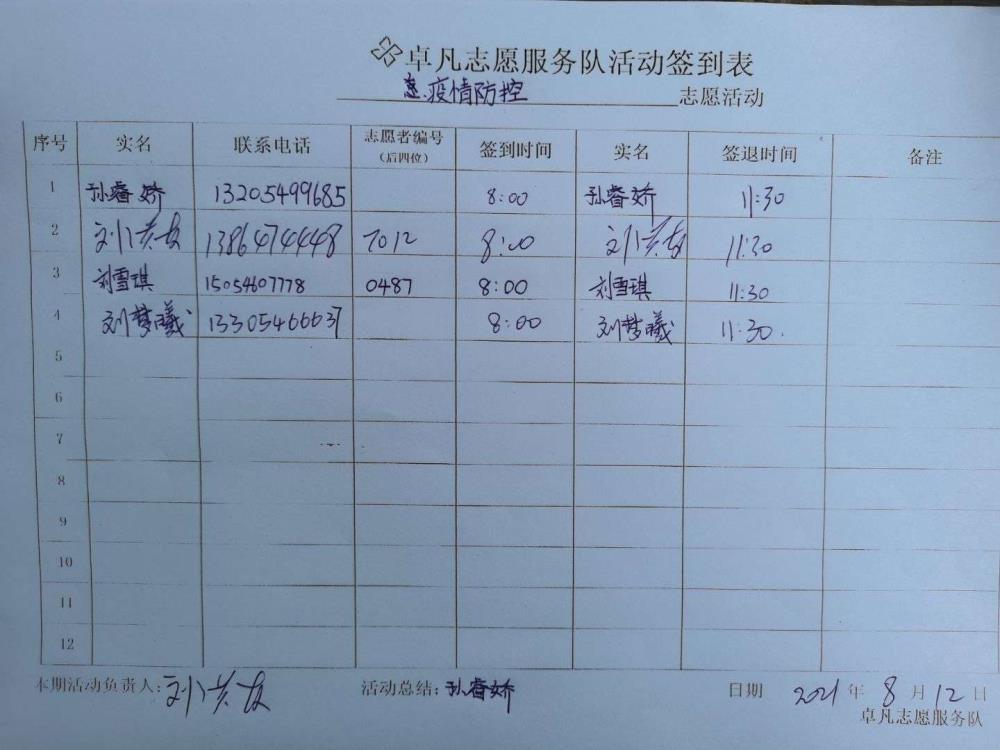 卓凡志愿服务队活动签到表
疫情防控 志愿活动
序号 实名 联系电话 志愿者编号(后四位) 签到时间 实名 签退时间 备注
1 孙睿娇 13205499685 8:00 孙睿娇 11:30
2 刘 13864744448 7012 8:00 刘 11:30
3 刘雪琪 15054607778 0487 8:00 刘雪琪 11:30
4 刘梦曦 13305466637 8:00 刘梦曦 11:30.
5
6
7
8
9
10
11
12
本期活动负责人: 刘 活动总结: 孙睿娇 日期 2021年8月12日
卓凡志愿服务队